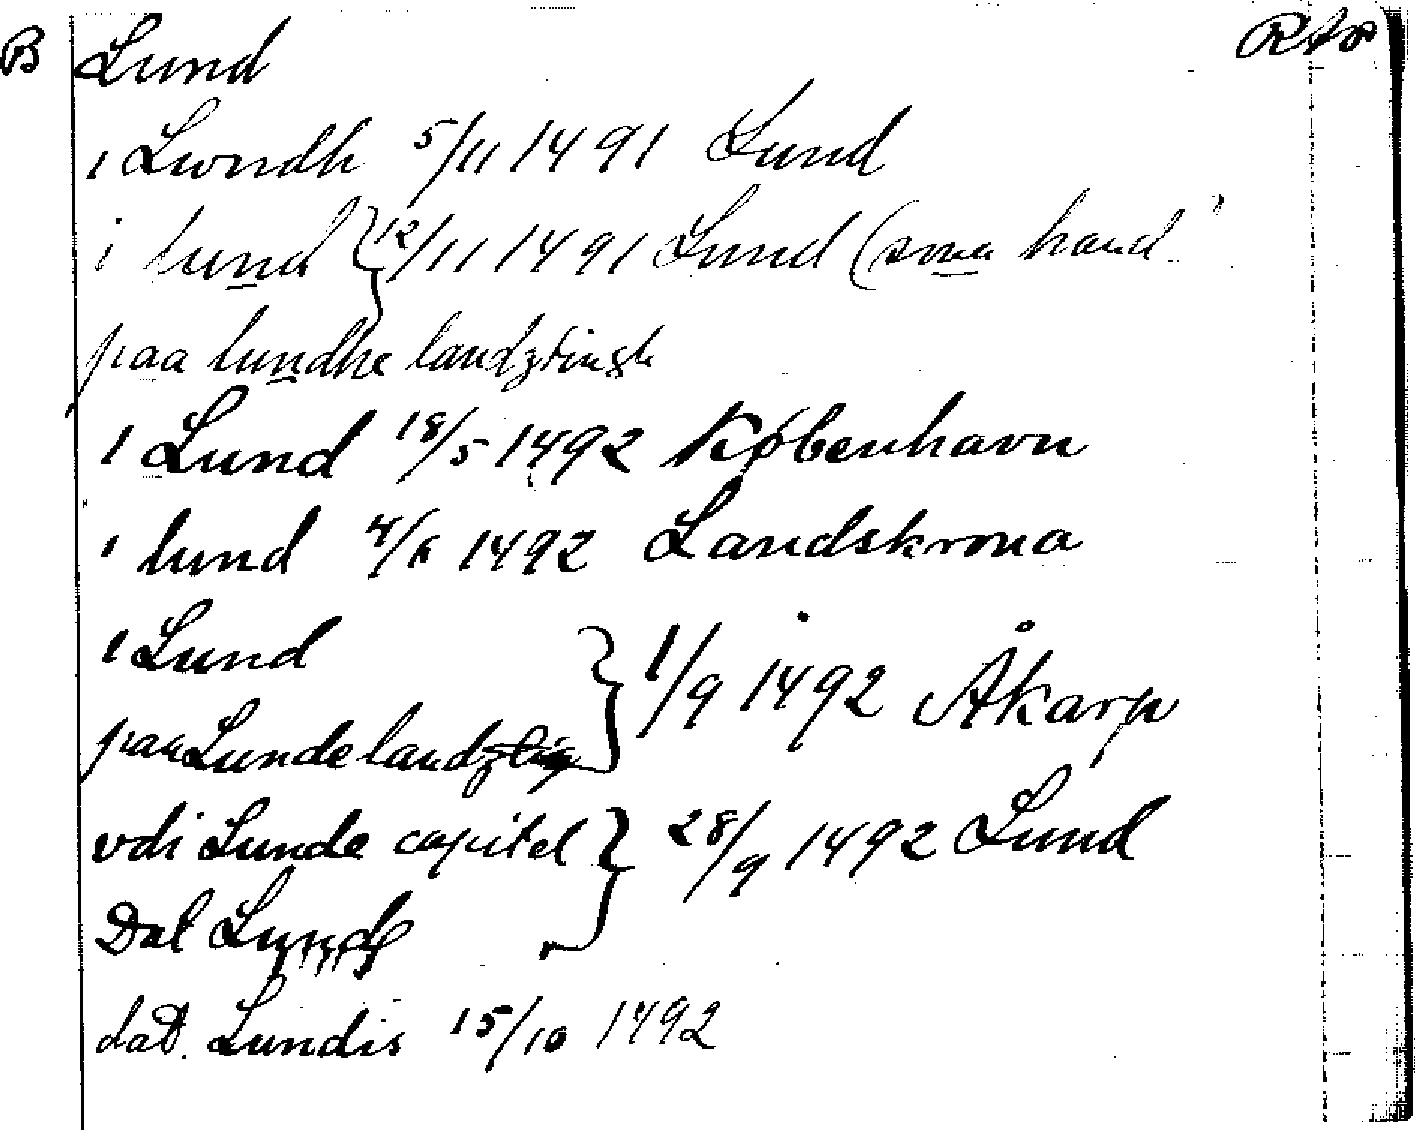 B Lund Rtp
i Lwndh 5/11 1491 Lund
i lund } 12/11 1491 Lund (sma hand)
paa lundhe landztingh
i Lund 18/5 1492 København
i lund 4/6 1492 Landskrona
i Lund
paa Lunde landzting } 1/9 1492 Åkarp
vdi Lunde capitel } 28/9 1492 Lund
Dat Lund
dat. Lundis 15/10 1492